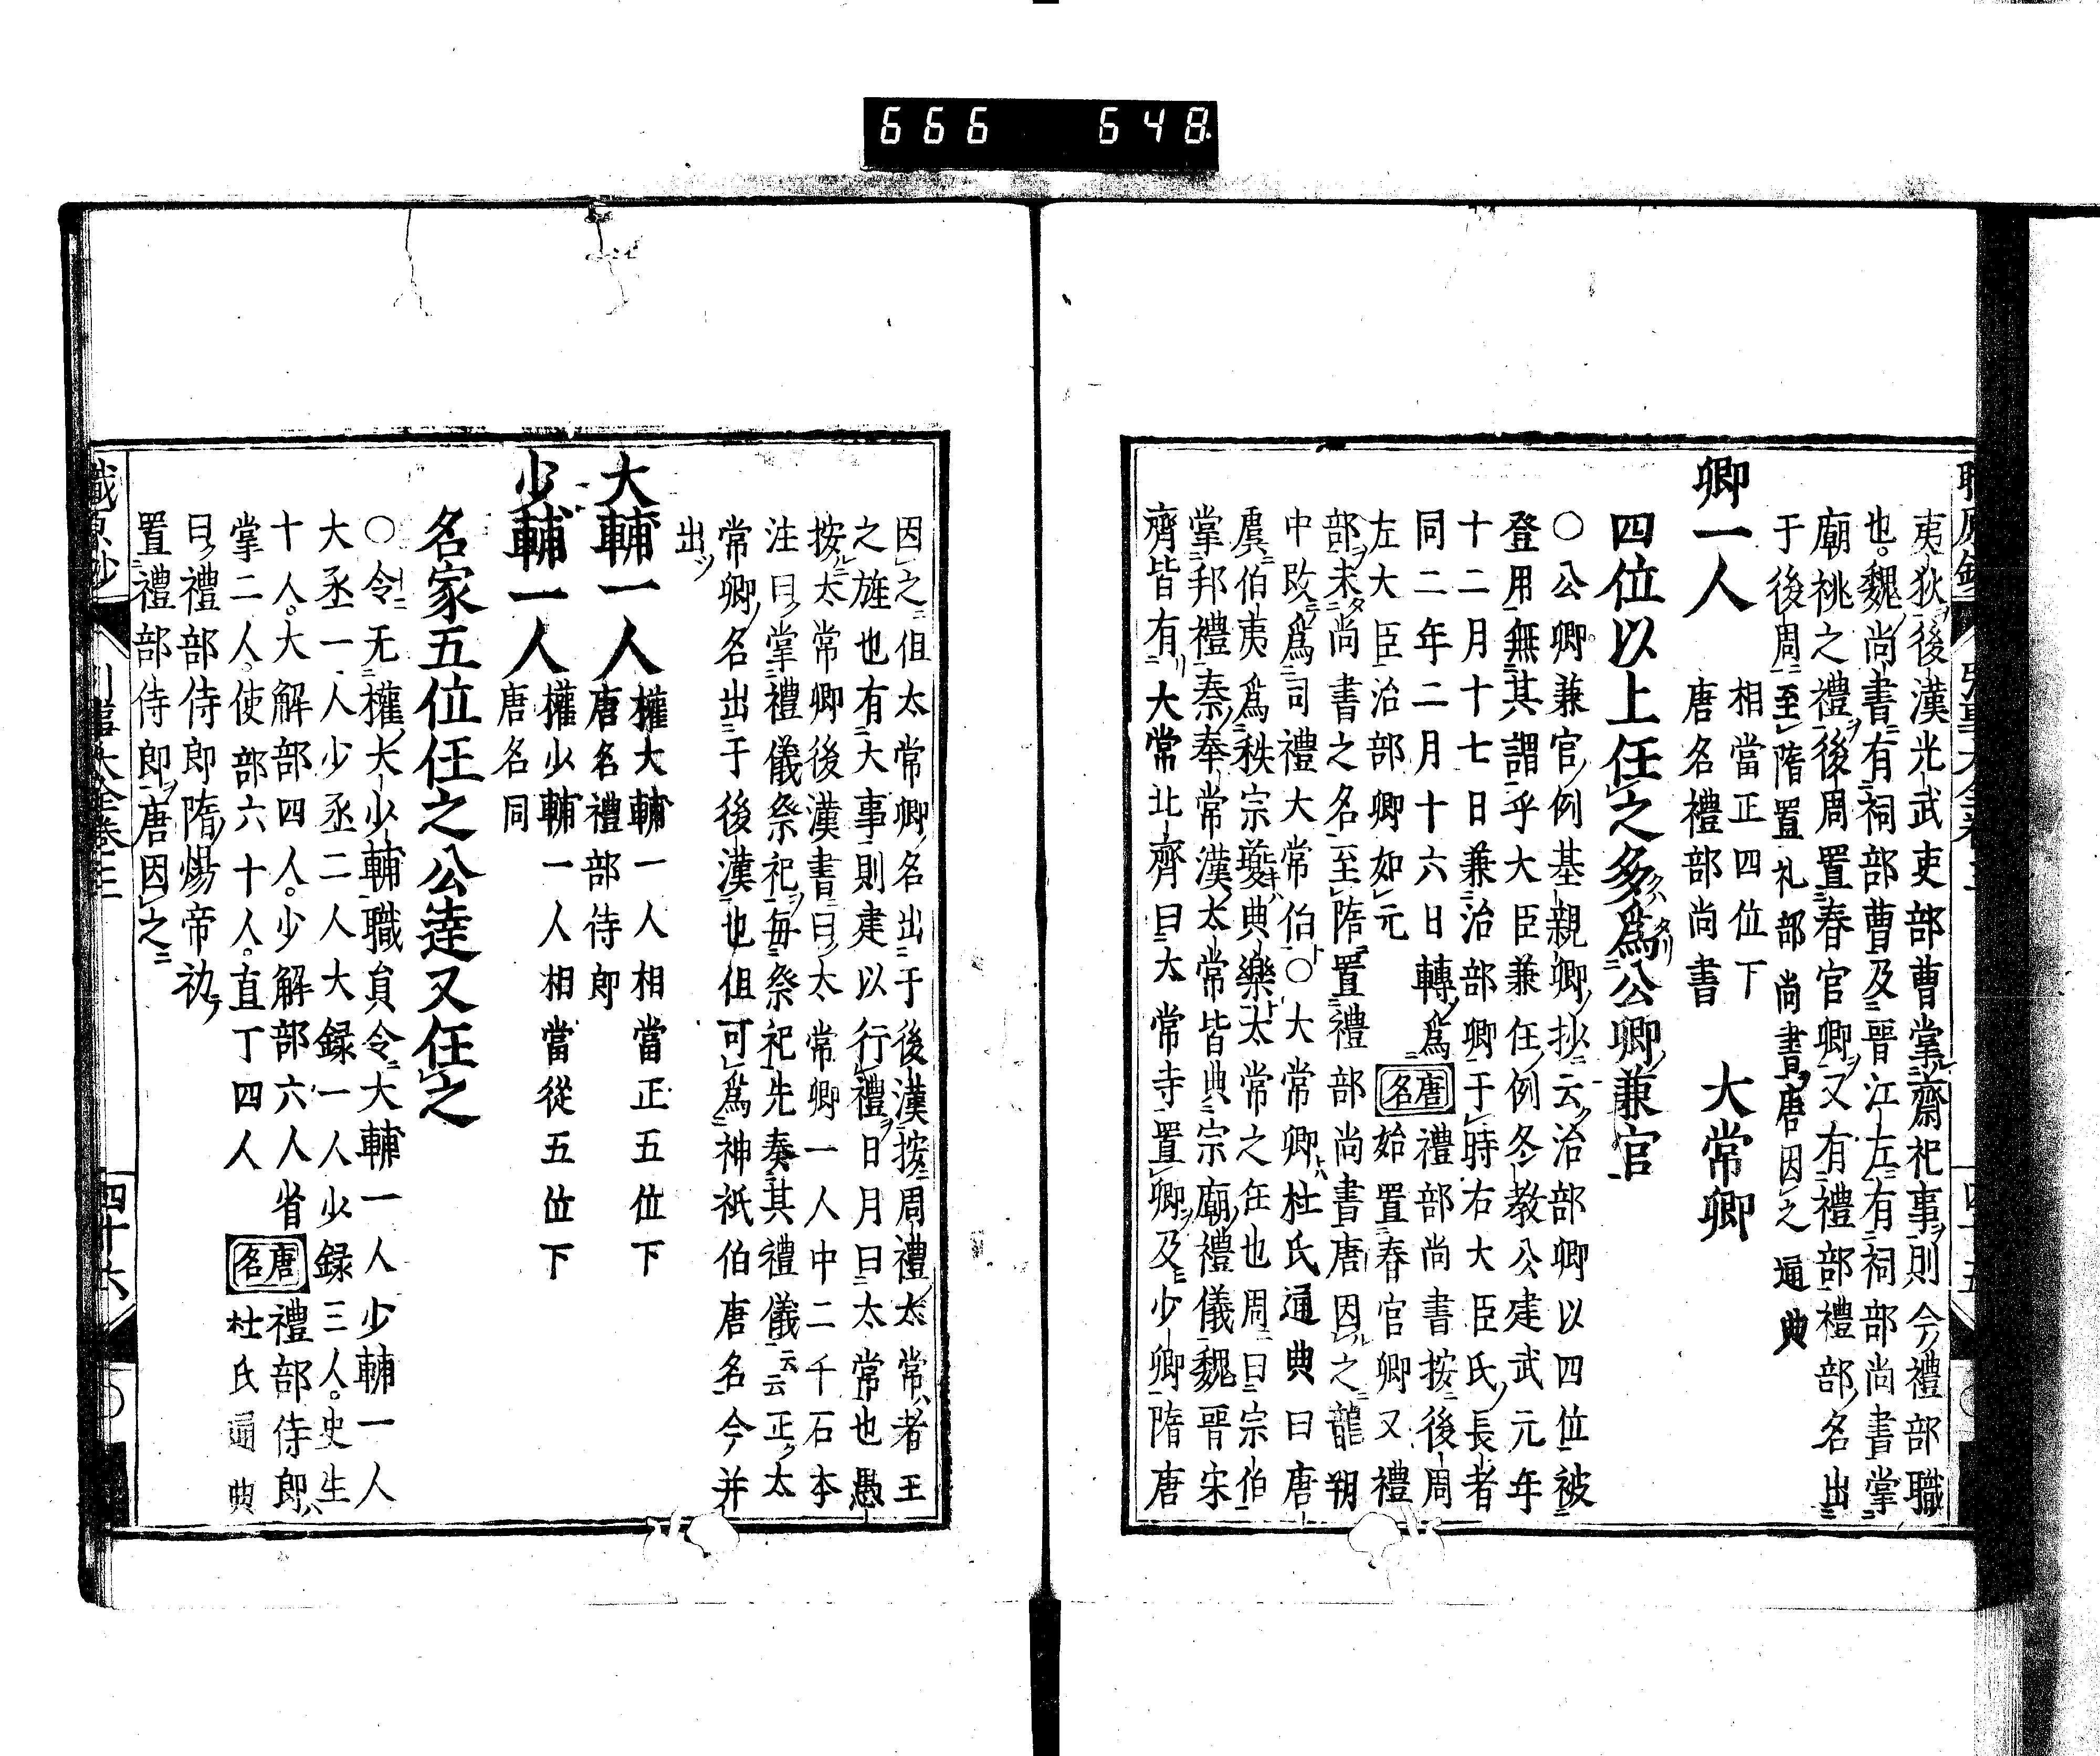 666 648
夷狄後漢光武吏部曹掌齋祀事則今禮部職
也魏尚書有祠部曹及晋江左有祠部尚書掌
廟祧之禮後周置春官卿又有禮部禮部名出
于後周至隋置礼部尚書唐因之通典
卿一人 相當正四位下 大常卿
唐名禮部尚書
四位以上任之多爲公卿兼官
〇公卿兼官例基親卿抄云治部卿以四位被
登用無其謂乎大臣兼任例冬教公建武元年
十二月十七日兼治部卿于時右大臣氏長者
同二年二月十六日轉爲
左大臣治部卿如元 唐名 禮部尚書按後周
始置春官卿又禮
部未尚書之名至隋置禮部尚書唐因之龍朔
中改爲司禮大常伯〇大常卿杜氏通典曰唐
虞伯夷爲秩宗夔典樂太常之任也周曰宗伯
掌邦禮秦奉常漢太常皆典宗廟禮儀魏晋宋
齊皆有大常北齊曰大常寺置卿及少卿隋唐
因之但太常卿名出于後漢按周禮太常者王
之旌也有大事則建以行禮日月曰太常也愚
按太常卿後漢書曰太常卿一人中二千石本
注曰掌禮儀祭祀毎祭祀先奏其禮儀云云正太
常卿名出于後漢也但可爲神祇伯唐名今并
出
大輔一人 權大輔一人相當正五位下
唐名禮部侍郎
少輔一人 權少輔一人相當從五位下
唐名同
名家五位任之公達又任之
〇令无權大少輔職員令大輔一人少輔一人
大丞一人少丞二人大録一人少録三人史生
十人大解部四人少解部六人省
掌二人使部六十人直丁四人 唐名 禮部侍郎
杜氏通典
曰禮部侍郎隋煬帝初
置禮部侍郎唐因之
四十六